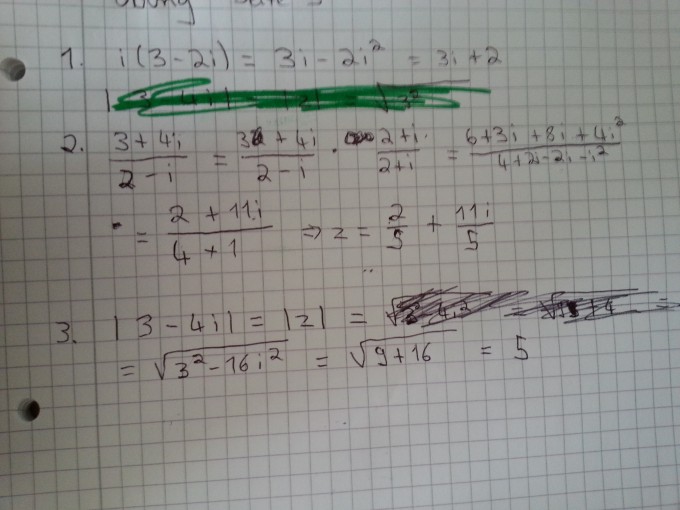 1. i(3-2i) = 3i - 2i² = 3i + 2
2. (3+4i)/(2-i) = (3 + 4i)/(2-i) · (2+i)/(2+i) = (6+3i+8i+4i²)/(4+2i-2i-i²)
= (2 + 11i)/(4 + 1) ⇒ z = 2/5 + 11i/5
3. |3-4i| = |z| =
= √(3²-16i²) = √(9+16) = 5